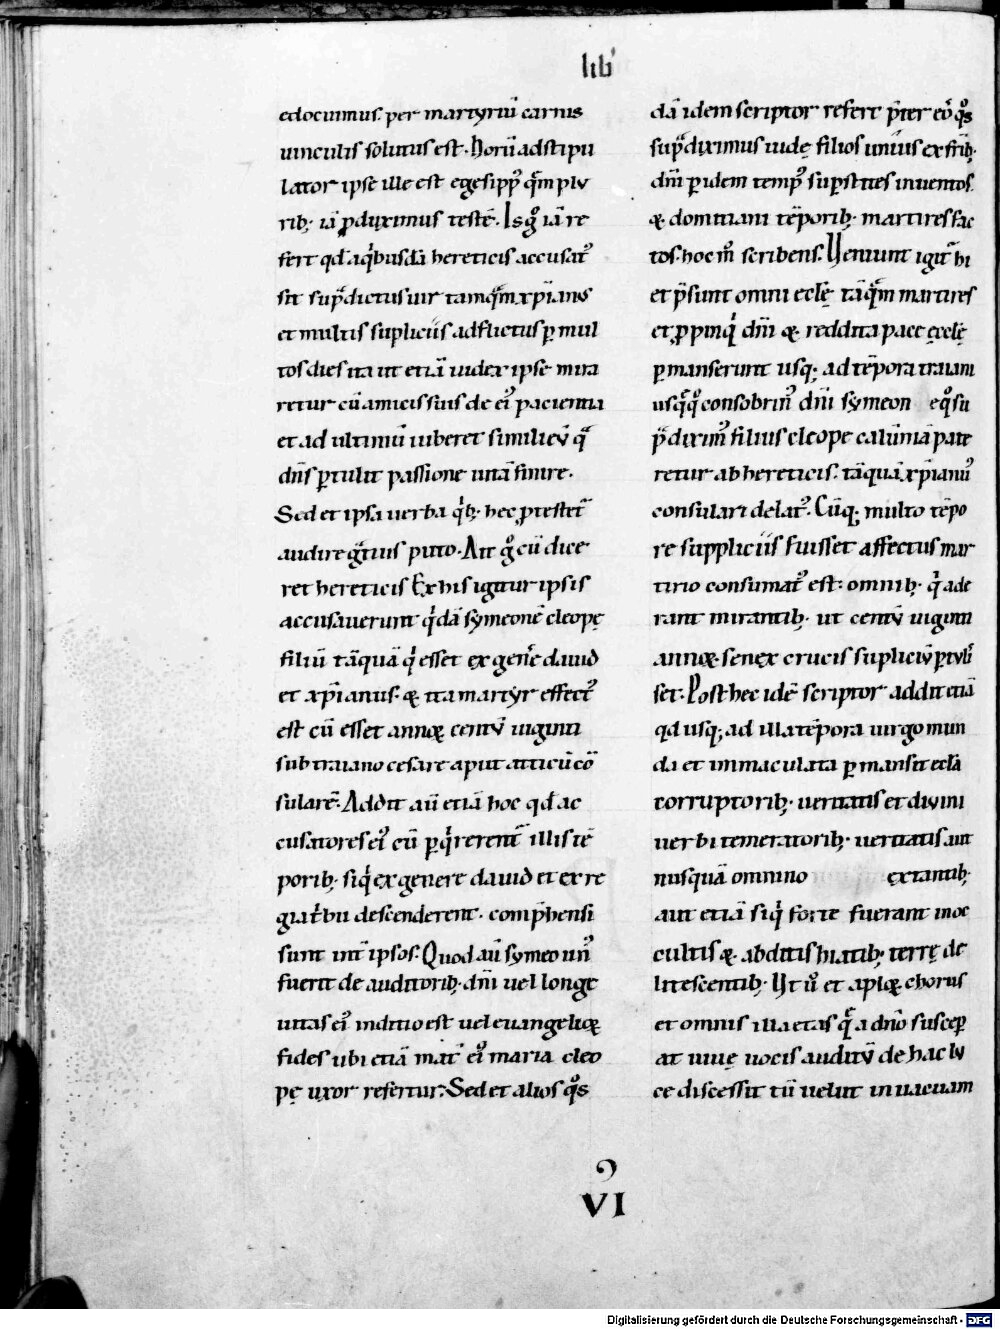 lib'
edocuimus. per martyriū carnis
uinculis solutus est. Horū adstipu
lator ipse ille est egesipp' quē plu
rib; iā pduximus testē. Is g° iā re
fert qd aq'busdā hereticis accusat'
sit sup̄dictus uir tamqm xp̄ianus
et multis supliciis adflictus p mul
tos dies ita ut etiā iudex ipse mira
retur cū amicis suis de ei' pacientia
et ad ultimū iuberet similiē q̄
dn̄s ptulit passione uitā finire.
Sed et ipsa uerba q'b; hec ptestet̄
audire g̃tius puto. Ait g° cū dice
ret hereticis Ex his igitur ipsis
accusauerunt q'dā symeonē cleopę
filiū tāquā q' esset ex gen̄e dauid
et xp̄ianus. & ita martyr effect'
est cū esset annoꝝ centū uiginti
sub traiano cesare aput atticū cō
sularē. Addit aū etiā hoc qd ac
cusatores ei' cū pq'rerent̄ illis tē
porib; siq' ex genere dauid et ex re
gia tribu descenderent. compħensi
sunt int̄ ipsos. Quod aū symeon n̄
fuerit de auditorib; dn̄i uel longe
uitas ei' inditio est uel euangelioꝝ
fides ubi etiā mat̄ ei' maria cleo
pę uxor refertur. Sed et alios q°s
dā idem scriptor refert p̄ter eō q°s
sup̄diximus iudę filios unius ex frīb;
dn̄i p idem temp' supstites inuentos
& domitiani tēporib; martires fac
tos. hoc m° scribens. Ueniunt igit̄ hi
et p̄sunt omni ecl̄ę tāqm martires
et ppinq' dn̄i & reddita pace ęcclę
pmanserunt usq; ad tēpora traiani
usq q° consobrin' dn̄i symeon eq°su
p̄dixim' filius cleope calūniā pate
retur ab hereticis. tāquā xp̄ianus
consulari delat'. Cūq; multo tēpo
re suppliciis fuisset affectus mar
tirio consumat' est: omnib; q' ade
rant mirantib; ut centū uiginti
annoꝝ senex crucis supliciū ptuli
set. Post hec idē scriptor addit etiā
qd usq; ad illa tēpora uirgo mun
da et immaculata pmansit ecl̄a
corruptorib; ueritatis et diuini
uerbi temeratorib; ueritatis aut
nusquā omnino extantib;
aut etiā siq' forte fuerant inoc
cultis & abditis hiatib; terrę de
litescentib; Ut ū et aploꝝ chorus
et omnis illa etas q̄ a dn̄o suscep
at uiuę uocis auditū de hac lu
ce discessit tū uelut in uacuam
VI
Digitalisierung gefördert durch die Deutsche Forschungsgemeinschaft - DFG